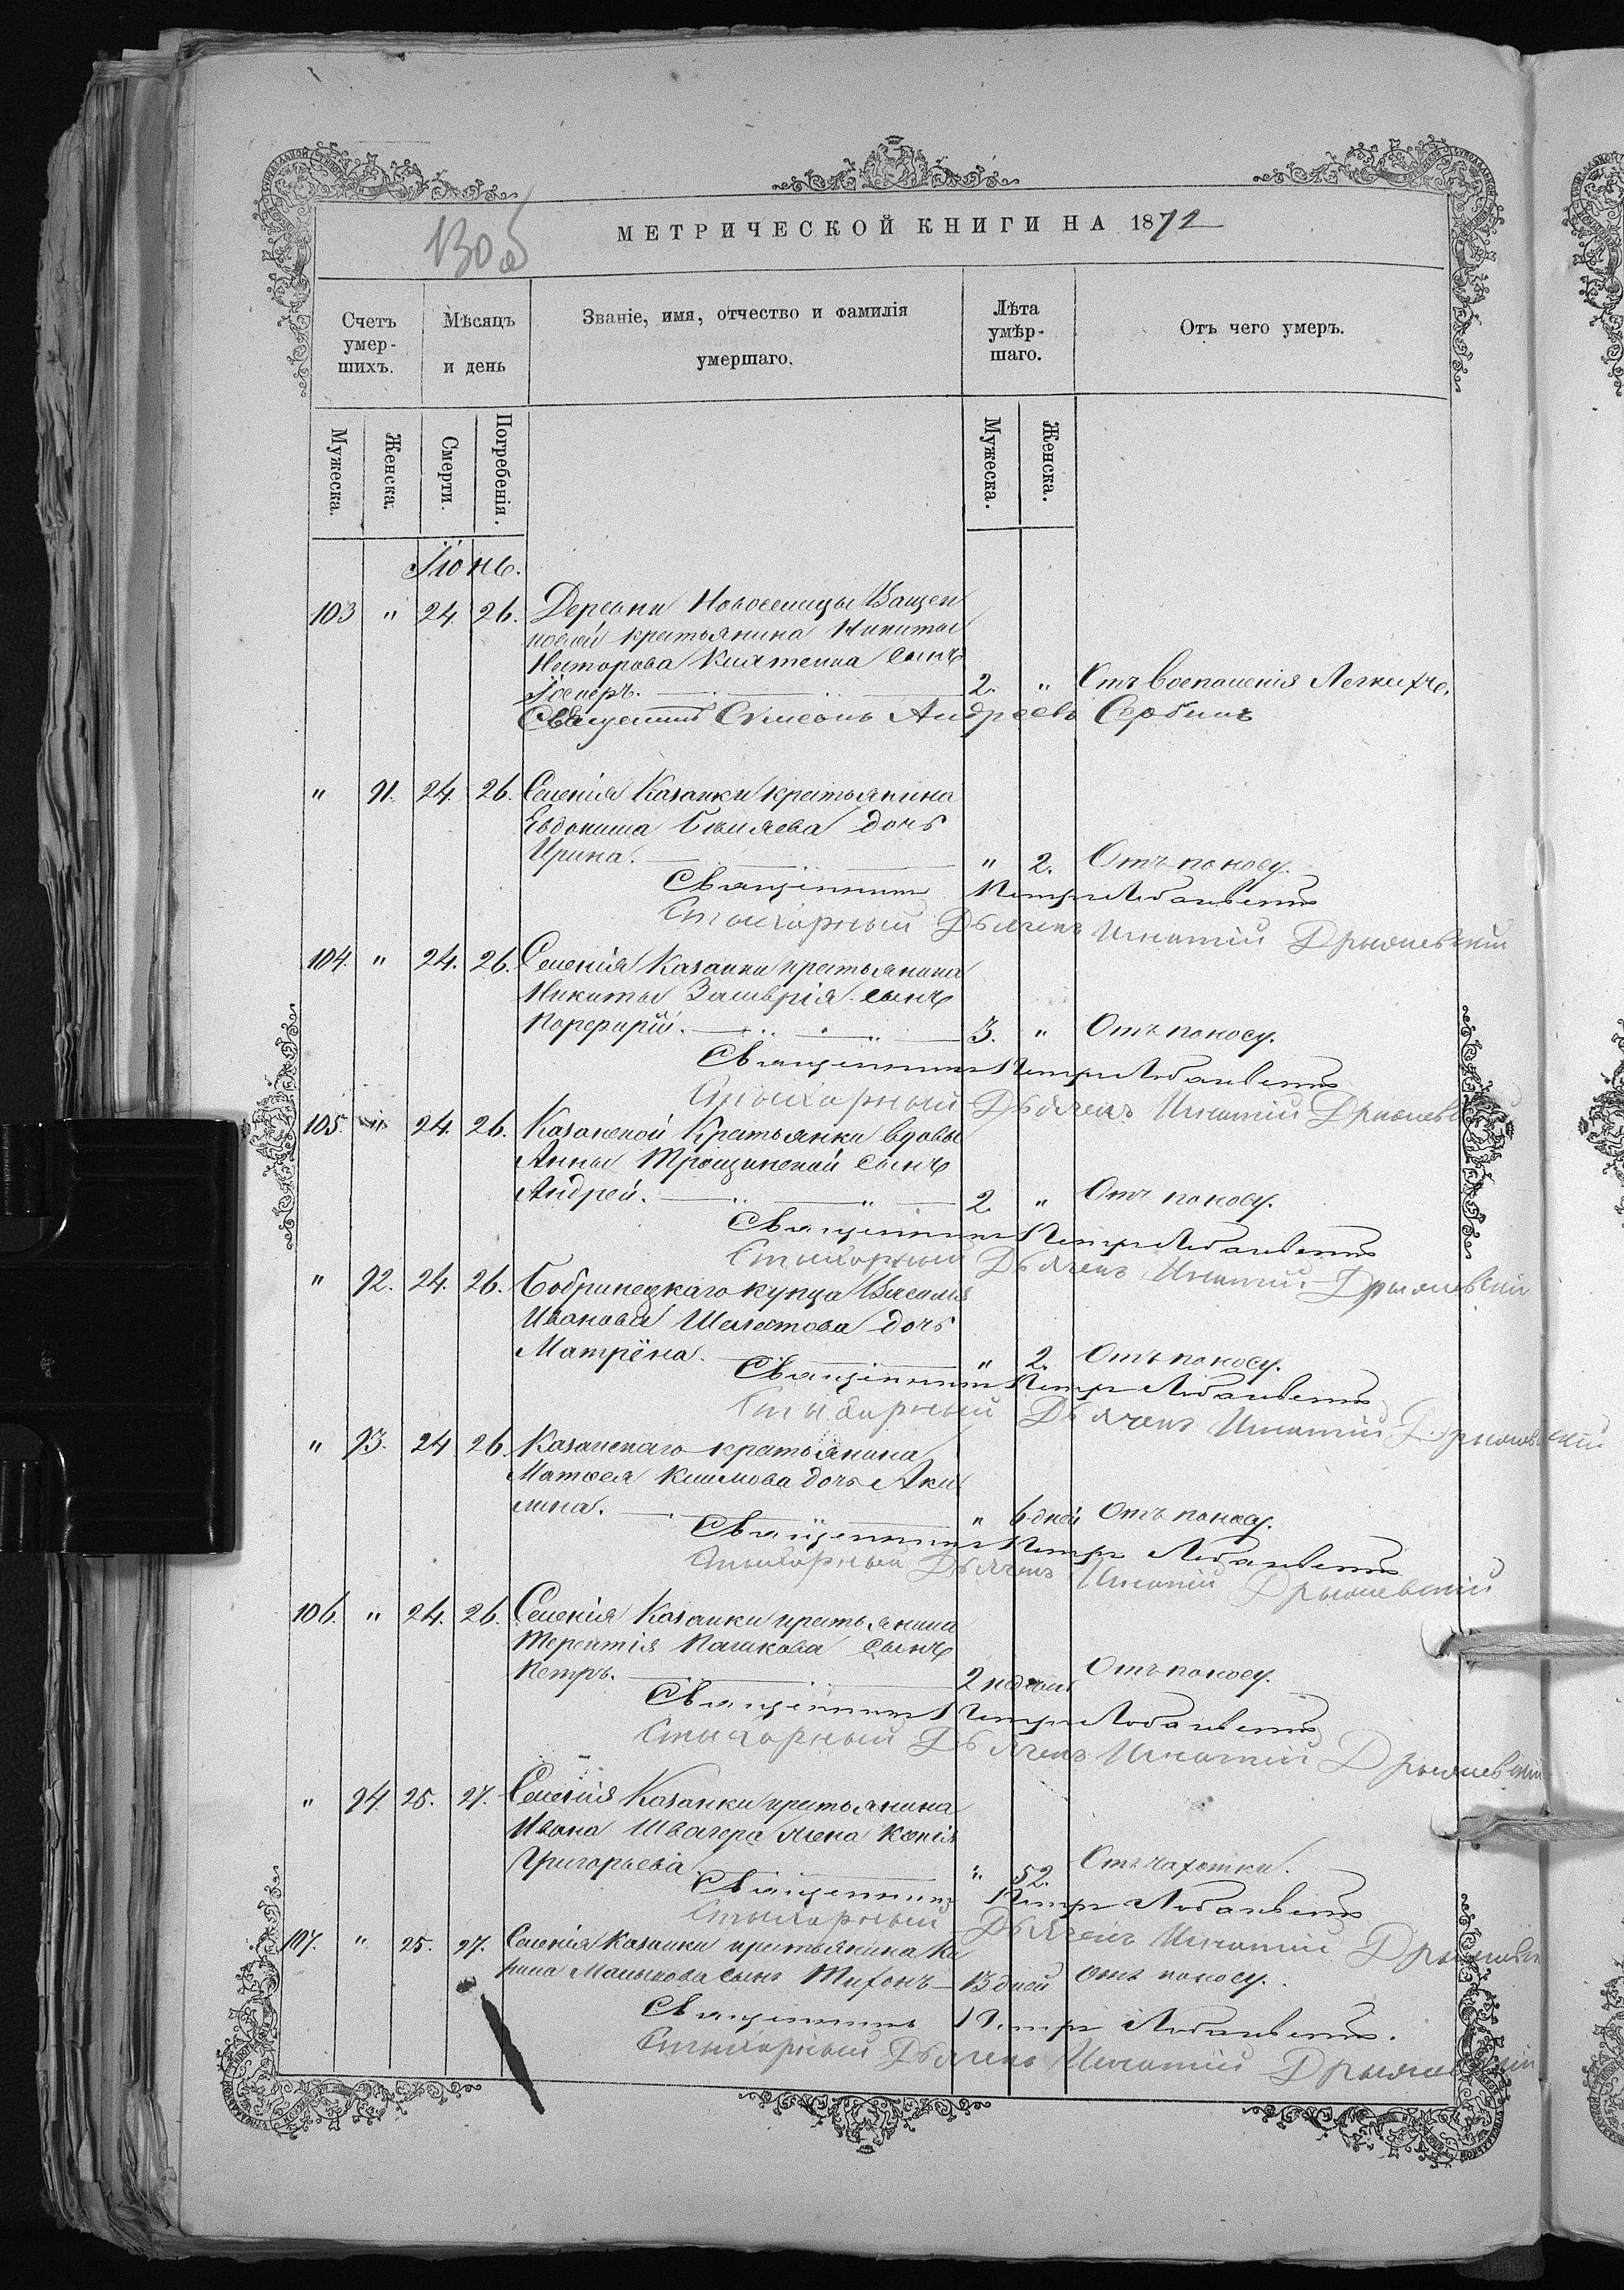 130 об
МЕТРИЧЕСКОЙ КНИГИ НА 1872
Счетъ умер-шихъ.
Мѣсяцъ и день
Званіе, имя, отчество и фамилія умершаго.
Лѣта умѣр-шаго.
Отъ чего умеръ.
Мужеска. Женска. Смерти. Погребенія. Мужеска. Женска.
Іюнь.
103 " 24 26. Деревни Новоселицы Ващен
ковой крестьянина Никиты
Несторова сынъ
2. " Отъ воспаленія Легкихъ.
Священникъ Симеонъ Андреевъ Сербинъ
" 91. 24. 26. Селенія Казанки крестьянина
Евдокима Бѣляева дочь
Ирина. " 2. Отъ поносу.
Священникъ Петръ
Стихарный Дьячекъ Игнатій
104. " 24. 26. Селенія Казанки крестьянина
Никиты сынъ
Порфирій. 3. " Отъ поносу.
Священникъ Петръ
Стихарный Дьячекъ Игнатій
105. " 24. 26. Казанской Крестьянки вдовы
Анны Трощинской сынъ
Андрей. 2. " Отъ поносу.
Священникъ Петръ
Стихарный Дьячекъ Игнатій
" 92. 24. 26. Бобринецкаго купца Василія
Иванова Шелестова дочь
Матрёна. " 2. Отъ поносу.
Священникъ Петръ
Стихарный Дьячекъ Игнатій
" 93. 24 26. Казанскаго крестьянина
Матвея Климова дочь Аки
лина. " 6 дней Отъ поносу.
Священникъ Петръ
Стихарный Дьячекъ Игнатій
106. " 24. 26. Селенія Казанки крестьянина
Терентія Пашкова сынъ
Петръ. 2 недели Отъ поносу.
Священникъ Петръ
Стихарный Дьячекъ Игнатій
" 94. 25. 27. Селенія Казанки крестьянина
Ивана Швагера жена Ксенія
Григорьева " 52. Отъ чахотки.
Священникъ Петръ
Стихарный Дьячекъ Игнатій
107. " 25. 27. Селенія Казанки крестьянина
Малыхова сынъ Тихонъ 13 дней Отъ поносу.
Священникъ Петръ
Стихарный Дьячекъ Игнатій